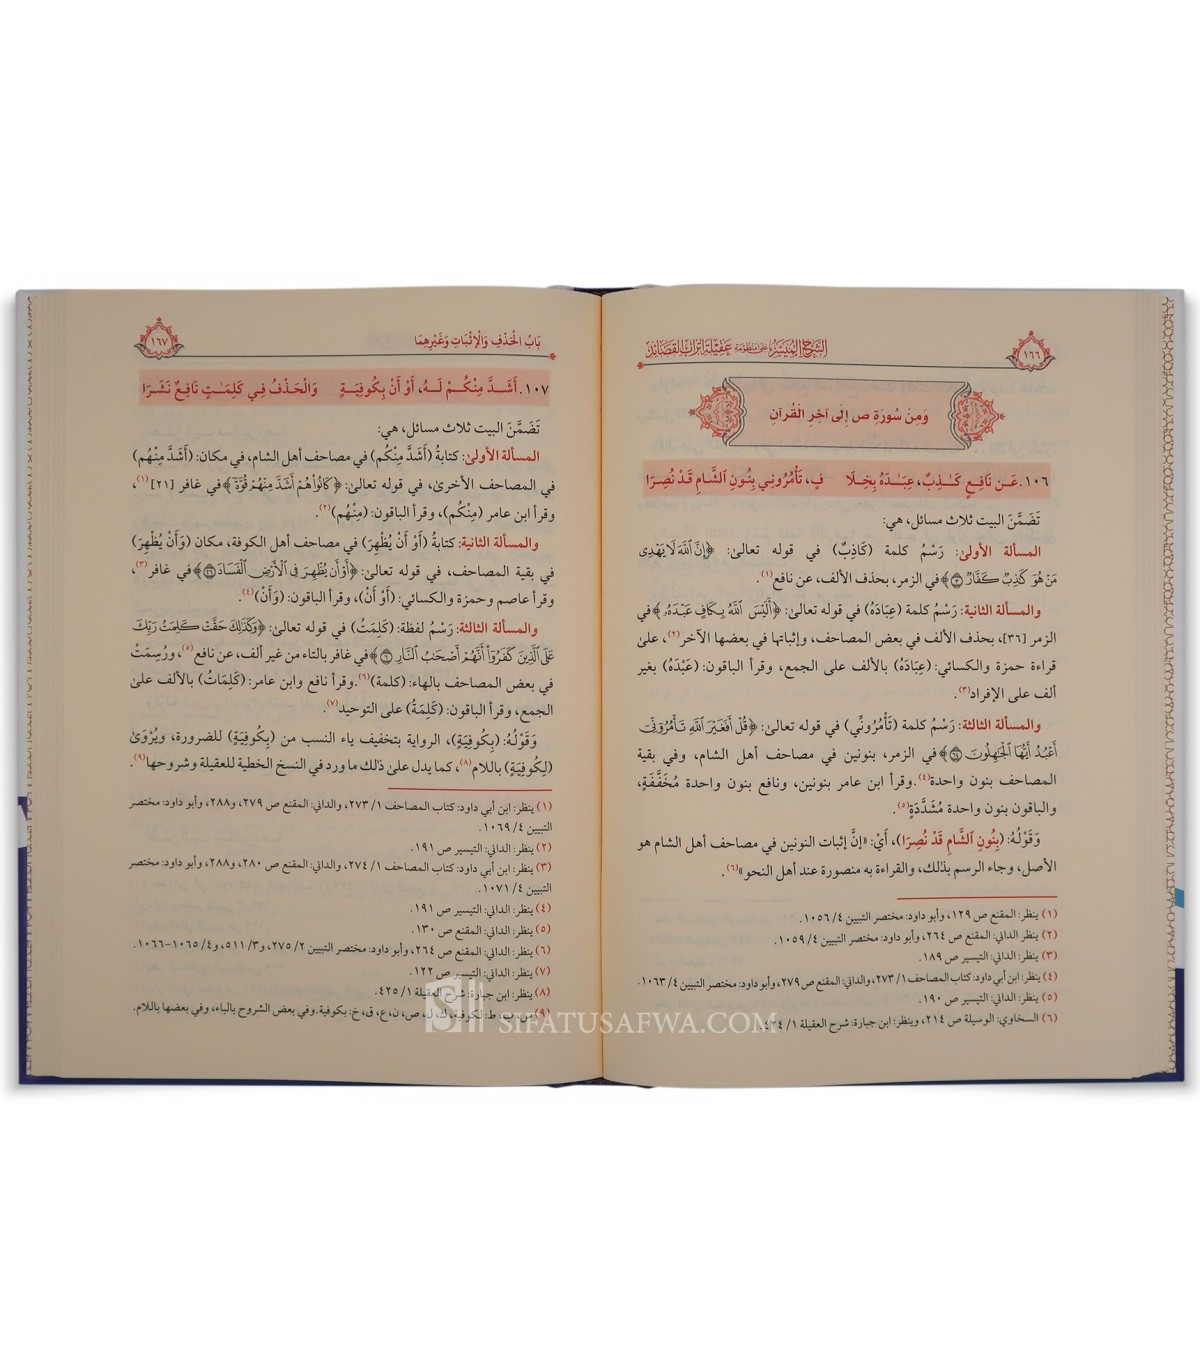 ١٦٦
الشرح الميسر على منظومة عقيلة أتراب القصائد
وَمِنْ سُورَةِ ص إِلَى آخِرِ الْقُرْآنِ
١٠٦. عَـن نَافِـعٍ كَـٰذِبٌ، عِبَـٰدَهُ بِخِـلَا فٍ، تَأْمُرُونِي بِنُونِ الشَّامِ قَدْ نُصِرَا
تَضَمَّنَ البيت ثلاث مسائل، هي:
المسألة الأولىٰ: رَسْمُ كلمة (كَاذِبٌ) في قوله تعالىٰ: ﴿إِنَّ ٱللَّهَ لَا يَهْدِى
مَنْ هُوَ كَٰذِبٌ كَفَّارٌ ٣﴾ في الزمر، بحذف الألف، عن نافع(١).
والمسألة الثانية: رَسْمُ كلمة (عِبَادَهُ) في قوله تعالىٰ: ﴿أَلَيْسَ ٱللَّهُ بِكَافٍ عَبْدَهُۥ﴾ في
الزمر [٣٦]، بحذف الألف في بعض المصاحف، وإثباتها في بعضها الآخر(٢)، علىٰ
قراءة حمزة والكسائي: (عِبَادَهُ) بالألف على الجمع، وقرأ الباقون: (عَبْدَهُ) بغير
ألف على الإفراد(٣).
والمسألة الثالثة: رَسْمُ كلمة (تَأْمُرُونِّي) في قوله تعالىٰ: ﴿قُلْ أَفَغَيْرَ ٱللَّهِ تَأْمُرُوٓنِّىٓ
أَعْبُدُ أَيُّهَا ٱلْجَٰهِلُونَ ٦٤﴾ في الزمر، بنونين في مصاحف أهل الشام، وفي بقية
المصاحف بنون واحدة(٤). وقرأ ابن عامر بنونين، ونافع بنون واحدة مُخَفَّفَةٍ،
والباقون بنون واحدة مُشَدَّدَةٍ(٥).
وَقَوْلُهُ: (بِنُونِ الشَّامِ قَدْ نُصِرَا)، أَيْ: «إنَّ إثبات النونين في مصاحف أهل الشام هو
الأصل، وجاء الرسم بذلك، والقراءة به منصورة عند أهل النحو»(٦).
(١) ينظر: المقنع ص ١٢٩، وأبو داود: مختصر التبيين ٤/ ١٠٥٦.
(٢) ينظر الداني: المقنع ص ٢٦٤، وأبو داود: مختصر التبيين ٤/ ١٠٥٩.
(٣) ينظر: الداني: التيسير ص ١٨٩.
(٤) ينظر: ابن أبي داود: كتاب المصاحف ١/ ٢٧٣، والداني: المقنع ص ٢٧٩، وأبو داود: مختصر التبيين ٤/ ١٠٦٣.
(٥) ينظر: الداني: التيسير ص ١٩٠.
(٦) السخاوي: الوسيلة ص ٢١٤، وينظر: ابن جبارة: شرح العقيلة ١/ ٤٢٤.
بَابُ الْحَذْفِ وَالْإِثْبَاتِ وَغَيْرِهِمَا
١٦٧
١٠٧. أَشَـدَّ مِنْكُـمْ لَـهُ، أَوْ أَنْ بِكُوفِيَـةٍ وَالْحَذْفُ فِي كَلِمَـٰتٍ نَافِعٌ نَشَـرَا
تَضَمَّنَ البيت ثلاث مسائل، هي:
المسألة الأولىٰ: كتابةُ (أَشَدَّ مِنْكُم) في مصاحف أهل الشام، في مكان: (أَشَدَّ مِنْهُم)
في المصاحف الأخرىٰ، في قوله تعالىٰ: ﴿كَانُوا۟ هُمْ أَشَدَّ مِنْهُمْ قُوَّةً﴾ في غافر [٢١](١)،
وقرأ ابن عامر (مِنْكُم)، وقرأ الباقون: (مِنْهُم)(٢).
والمسألة الثانية: كتابةُ (أَوْ أَنْ يُظْهِرَ) في مصاحف أهل الكوفة، مكان (وَأَنْ يُظْهِرَ)
في بقية المصاحف، في قوله تعالىٰ: ﴿أَوْ أَن يُظْهِرَ فِى ٱلْأَرْضِ ٱلْفَسَادَ ٢٦﴾ في غافر(٣)،
وقرأ عاصم وحمزة والكسائي: (أَوْ أَنْ)، وقرأ الباقون: (وَأَنْ)(٤).
والمسألة الثالثة: رَسْمُ لفظة: (كَلِمَتُ) في قوله تعالىٰ: ﴿وَكَذَٰلِكَ حَقَّتْ كَلِمَتُ رَبِّكَ
عَلَى ٱلَّذِينَ كَفَرُوٓا۟ أَنَّهُمْ أَصْحَٰبُ ٱلنَّارِ ٦﴾ في غافر بالتاء من غير ألف، عن نافع(٥)، ورُسِمَتْ
في بعض المصاحف بالهاء: (كلمة)(٦). وقرأ نافع وابن عامر: (كَلِمَاتُ) بالألف علىٰ
الجمع، وقرأ الباقون: (كَلِمَةُ) على التوحيد(٧).
وَقَوْلُهُ: (بِكُوفِيَةٍ)، الرواية بتخفيف ياء النسب من (بِكُوفِيَةٍ) للضرورة، ويُرْوَىٰ
(لِكُوفِيَةٍ) باللام(٨)، كما يدل علىٰ ذلك ما ورد في النسخ الخطية للعقيلة وشروحها(٩).
(١) ينظر: ابن أبي داود: كتاب المصاحف ١/ ٢٧٣، والداني: المقنع ص ٢٧٩، و٢٨٨، وأبو داود: مختصر
التبيين ٤/ ١٠٦٩.
(٢) ينظر: الداني: التيسير ص ١٩١.
(٣) ينظر: ابن أبي داود: كتاب المصاحف ١/ ٢٧٤، والداني: المقنع ص ٢٨٠، و٢٨٨، وأبو داود: مختصر
التبيين ٤/ ١٠٧١.
(٤) ينظر: الداني: التيسير ص ١٩١.
(٥) ينظر: الداني: المقنع ص ١٣٠.
(٦) ينظر: الداني: المقنع ص ٢٦٤، وأبو داود: مختصر التبيين ٢/ ٢٧٥، و٣/ ٥١١، و٤/ ١٠٦٥-١٠٦٦.
(٧) ينظر: الداني: التيسير ص ١٢٢.
(٨) ينظر: ابن جبارة: شرح العقيلة ١/ ٤٢٥.
(٩) س، ب، ط: لكوفية، ك، ل، ص، ن، ع، ق، خ: بكوفية. وفي بعض الشروح بالباء، وفي بعضها باللام.
SIFATUSAFWA.COM